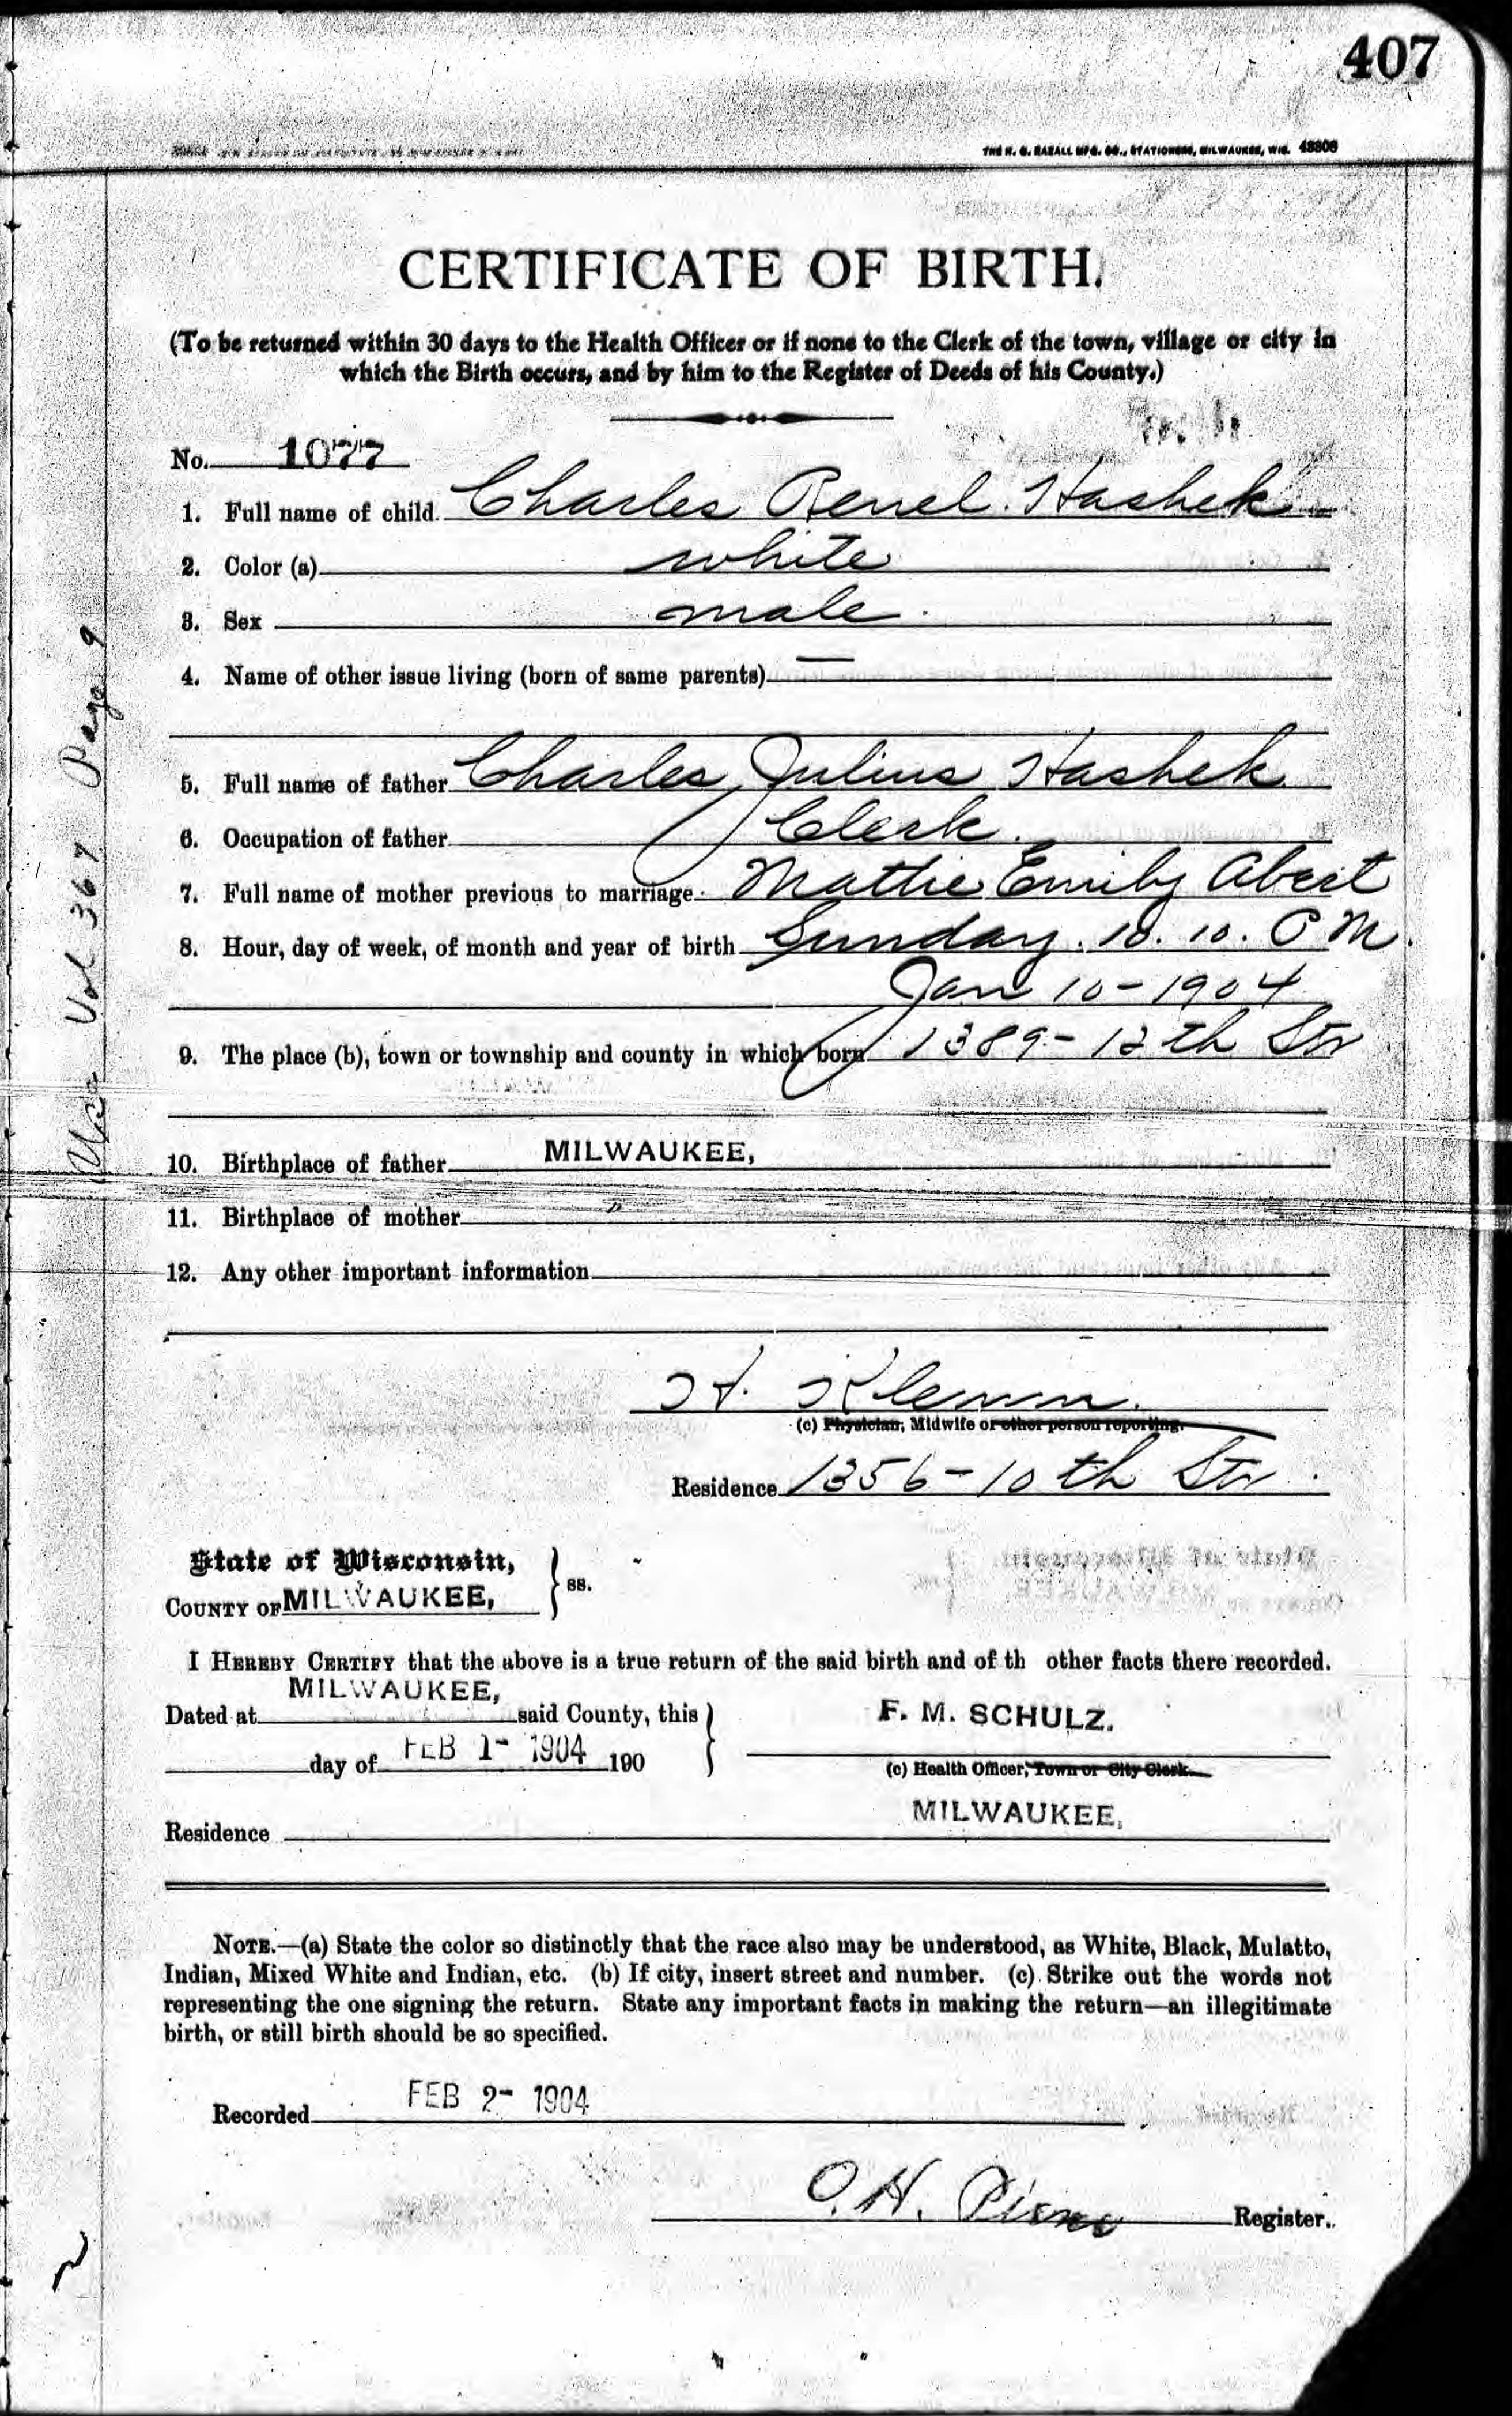 407
THE H. G. RAZALL MFG. CO., STATIONERS, MILWAUKEE, WIS. 48806
CERTIFICATE OF BIRTH.
(To be returned within 30 days to the Health Officer or if none to the Clerk of the town, village or city in
which the Birth occurs, and by him to the Register of Deeds of his County.)
No. 1077
1. Full name of child Charles Hashek
2. Color (a) white
3. Sex male
4. Name of other issue living (born of same parents) —
5. Full name of father Charles Julius Hashek
6. Occupation of father Clerk.
7. Full name of mother previous to marriage Mathie Emily Abert
8. Hour, day of week, of month and year of birth Sunday. 10. 10. P M.
Jan 10-1904
9. The place (b), town or township and county in which born 1389-12th Str
10. Birthplace of father MILWAUKEE,
11. Birthplace of mother "
12. Any other important information
H. Klemm.
(c) Physician, Midwife or other person reporting.
Residence 1356-10th Str.
State of Wisconsin,
COUNTY OF MILWAUKEE, } ss.
I HEREBY CERTIFY that the above is a true return of the said birth and of th other facts there recorded.
MILWAUKEE,
Dated at said County, this
F. M. SCHULZ.
day of FEB 1- 1904 190
(c) Health Officer, Town or City Clerk.
MILWAUKEE,
Residence
NOTE.—(a) State the color so distinctly that the race also may be understood, as White, Black, Mulatto,
Indian, Mixed White and Indian, etc. (b) If city, insert street and number. (c) Strike out the words not
representing the one signing the return. State any important facts in making the return—an illegitimate
birth, or still birth should be so specified.
Recorded FEB 2- 1904
O. H. Register.
Vol 367 Page 9